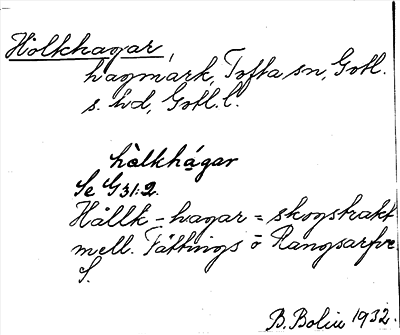 Hölkhagar,
hagmark, Tofta sn, Gotl.
s. hd, Gotl. l.
hò̀lkhágar
Se G31:2.
Hållk-hagar = skogstrakt
mell. Tättings o Rangsarfve
S.
B. Bolin 1932.